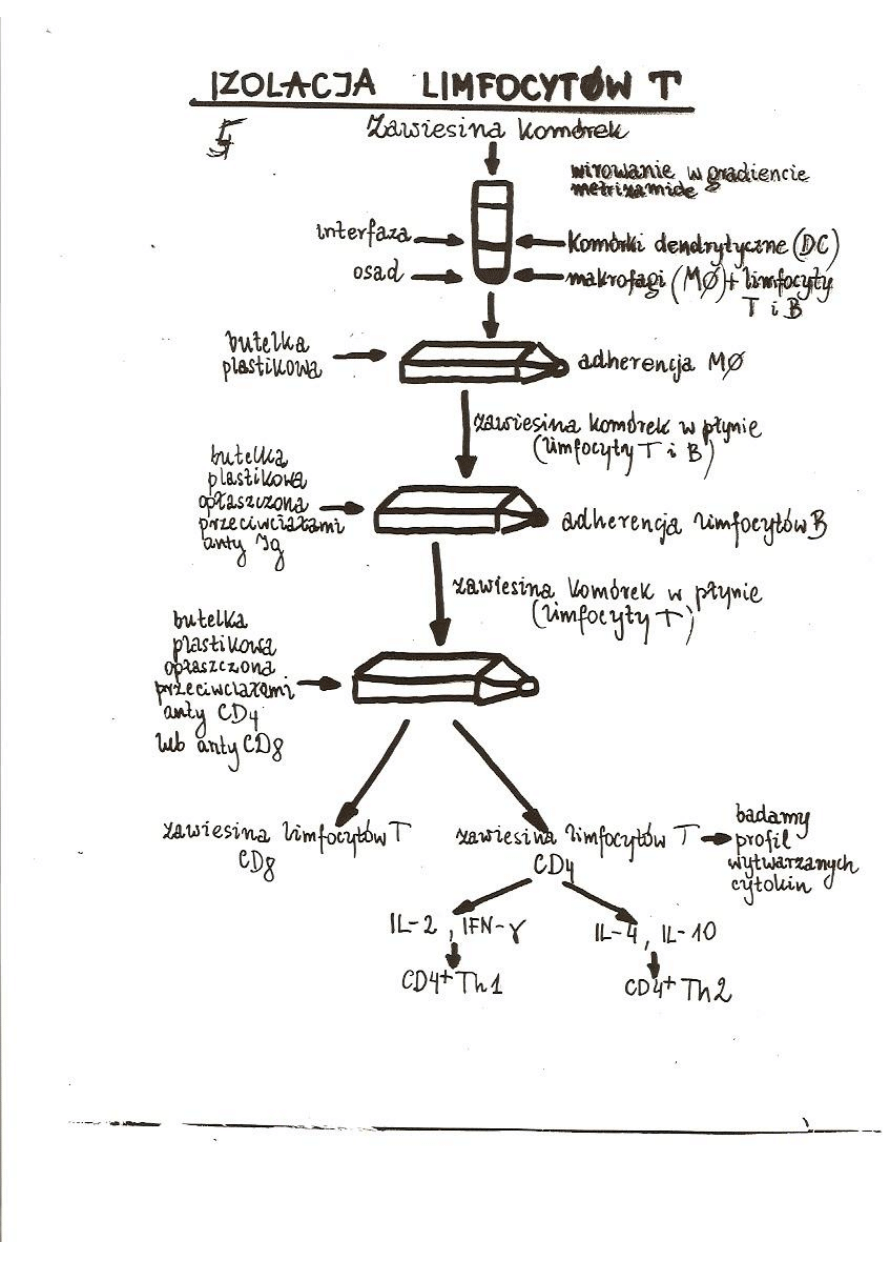 IZOLACJA LIMFOCYTÓW T
5
Zawiesina komórek
wirowanie w gradiencie
metrizamide
interfaza
komórki dendrytyczne (DC)
osad
makrofagi (MØ) + limfocyty
T i B
butelka
plastikowa
adherencja MØ
zawiesina komórek w płynie
(limfocyty T i B)
butelka
plastikowa
opłaszczona
przeciwciałami
anty Ig
adherencja limfocytów B
zawiesina komórek w płynie
(limfocyty T)
butelka
plastikowa
opłaszczona
przeciwciałami
anty CD4
lub anty CD8
zawiesina limfocytów T
CD8
zawiesina limfocytów T
CD4
badamy
profil
wytwarzanych
cytokin
IL-2, IFN-γ
IL-4, IL-10
CD4+ Th1
CD4+ Th2